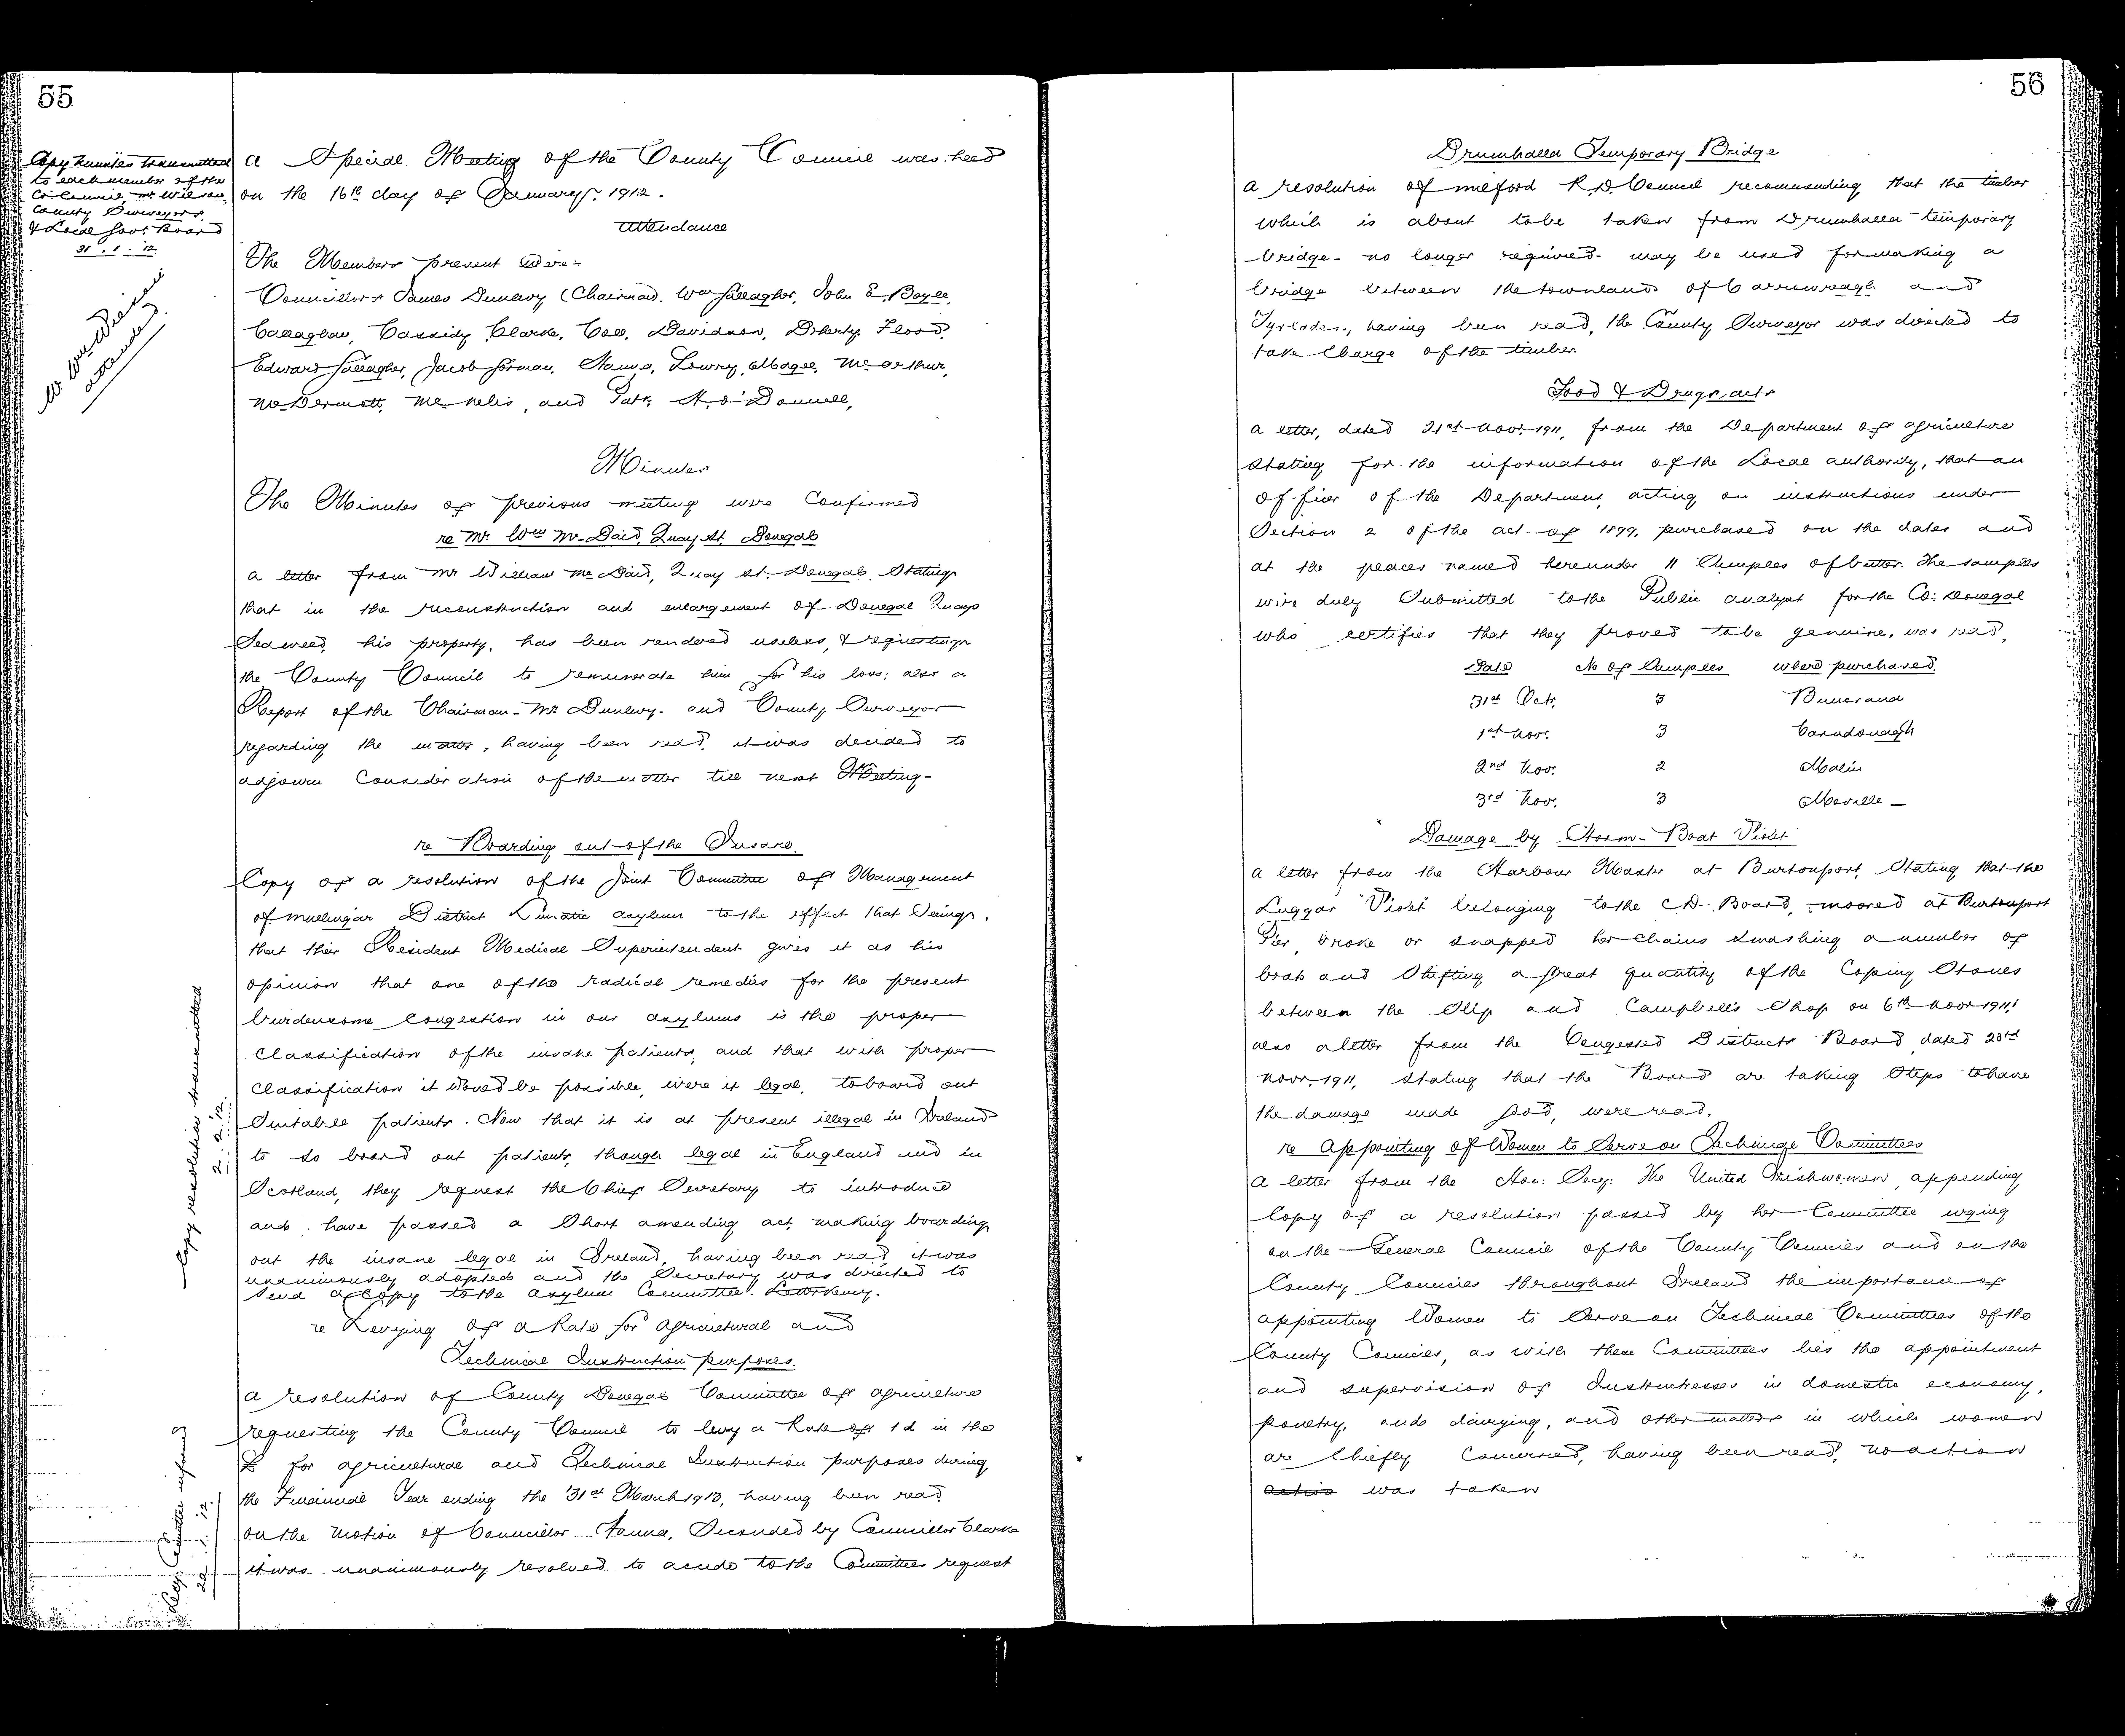 55
Copy minutes transmitted
to each member of the
Co. Council, Mr Wilson,
County Surveyors
& Local Govt Board
31 . 1 . 12
A Special Meeting of the County Council was held
on the 16th day of January, 1912.
Attendance
The Members present were:-
Councillors James Dunlevy (Chairman. Wm Gallagher, John E. Boyle,
Callaghan, Cassidy, Clarke, Coll, Davidson, Doherty, Flood,
Edward Gallagher, Jacob Gorman, Hanna, Lowry, Magee, McArthur,
McDermott, McNelis, and Patk. A. O'Donnell,
Minutes
The Minutes of previous meeting were Confirmed
re Mr Wm McDaid, Quay St. Donegal
A letter from Mr William McDaid, Quay St. Donegal, Stating
that in the reconstruction and enlargement of Donegal Quay
Seaweed, his property, has been rendered useless, & requesting
the County Council to remunerate him for his loss; also a
Report of the Chairman - Mr Dunlevy - and County Surveyor
regarding the matter, having been read, it was decided to
adjourn Consideration of the matter till next Meeting -
re Boarding out of the Insane.
Copy of a resolution of the Joint Committee of Management
of Mullingar District Lunatic Asylum to the effect that Seeing,
that their Resident Medical Superintendent gives it as his
opinion that one of the radical remedies for the present
burdensome Congestion in our asylums is the proper
Classification of the insane patients, and that with proper
Classification it Would be possible, were it legal, to board out
Suitable patients. Now that it is at present illegal in Ireland
to so board out patients, though legal in England and in
Scotland, they request the Chief Secretary to introduce
and have passed a Short amending act making boarding
out the insane legal in Ireland, having been read, it was
unanimously adopted and the Secretary was directed to
Send a Copy to the Asylum Committee Letterkenny.
Copy resolution transmitted
2 . 2 . 12
re Levying of a Rate for Agricultural and
Technical Instruction purposes.
A resolution of County Donegal Committee of Agriculture
requesting the County Council to levy a Rate of 1d in the
£ for agricultural and Technical Instruction purposes during
the Financial Year ending the 31st March 1913, having been read
on the Motion of Councillor Hanna, Seconded by Councillor Clarke
it was unanimously resolved to accede to the Committees request
Secy. Committee informed
22 . 1 . 12
56
Drumhalla Temporary Bridge
A resolution of Milford R.D. Council recommending that the timber
which is about to be taken from Drumhalla temporary
bridge - no longer required - may be used for making a
bridge between the townlands of Carrowreagh and
having been read, the County Surveyor was directed to
take Charge of the timber.
Food & Drugs Acts
A letter, dated 21st Novr. 1911, from the Department of Agriculture
Stating for the information of the Local authority, that an
Officer of the Department, acting on instructions under
Section 2 of the act of 1899, purchased on the dates and
at the places named hereunder 11 Samples of butter. The samples
were duly Submitted to the Public analyst for the Co: Donegal
who certifies that they proved to be genuine, was read.
Date No of Samples where purchased
31st Oct. 3 Buncrana
1st Nov. 3 Carndonagh
2nd Nov. 2 Malin
3rd Nov. 3 Moville -
Damage by Storm - Boat Violet
A letter from the Harbour Master at Burtonport, Stating that the
Luggar Violet belonging to the C.D. Board, moored at Burtonport
Pier, broke or snapped her Chains smashing a number of
boats and Shifting a great quantity of the Coping Stones
between the Slip and Campbell's Shop on 6th Novr 1911;
also a letter from the Congested Districts Board dated 23rd
Novr. 1911, stating that the Board are taking Steps to have
the damage made good, were read.
re Appointing of Women to Serve on Technical Committees
A letter from the Hon: Secy: The United Irishwomen, appending
Copy of a resolution passed by her Committee urging
on the General Council of the County Councils and on the
County Councils throughout Ireland the importance of
appointing Women to Serve on Technical Committees of the
County Councils, as with these Committees lies the appointment
and supervision of Instructresses in domestic economy,
poultry, and dairying, and other matters in which women
are Chiefly Concerned, having been read, no action
action was taken